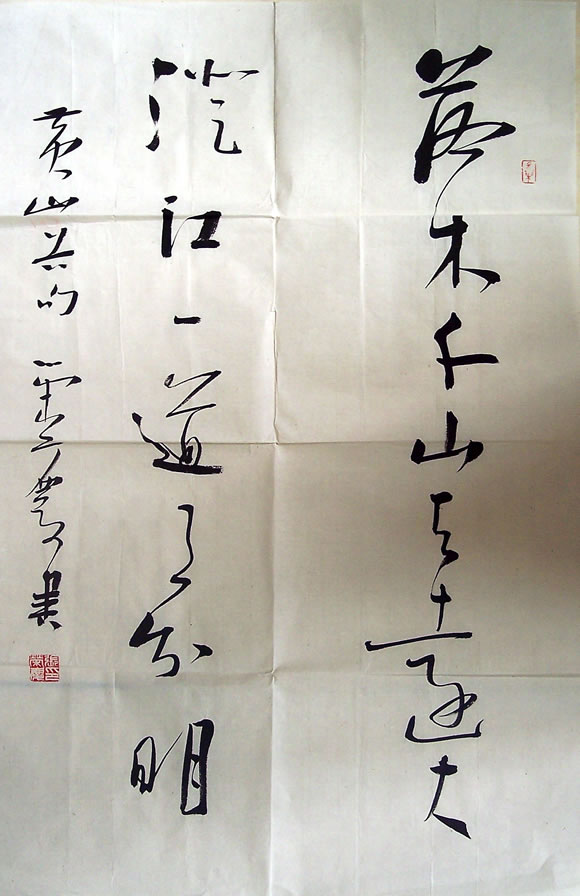 落木千山天遠大
澄江一道月分明
黄山谷句 慶書